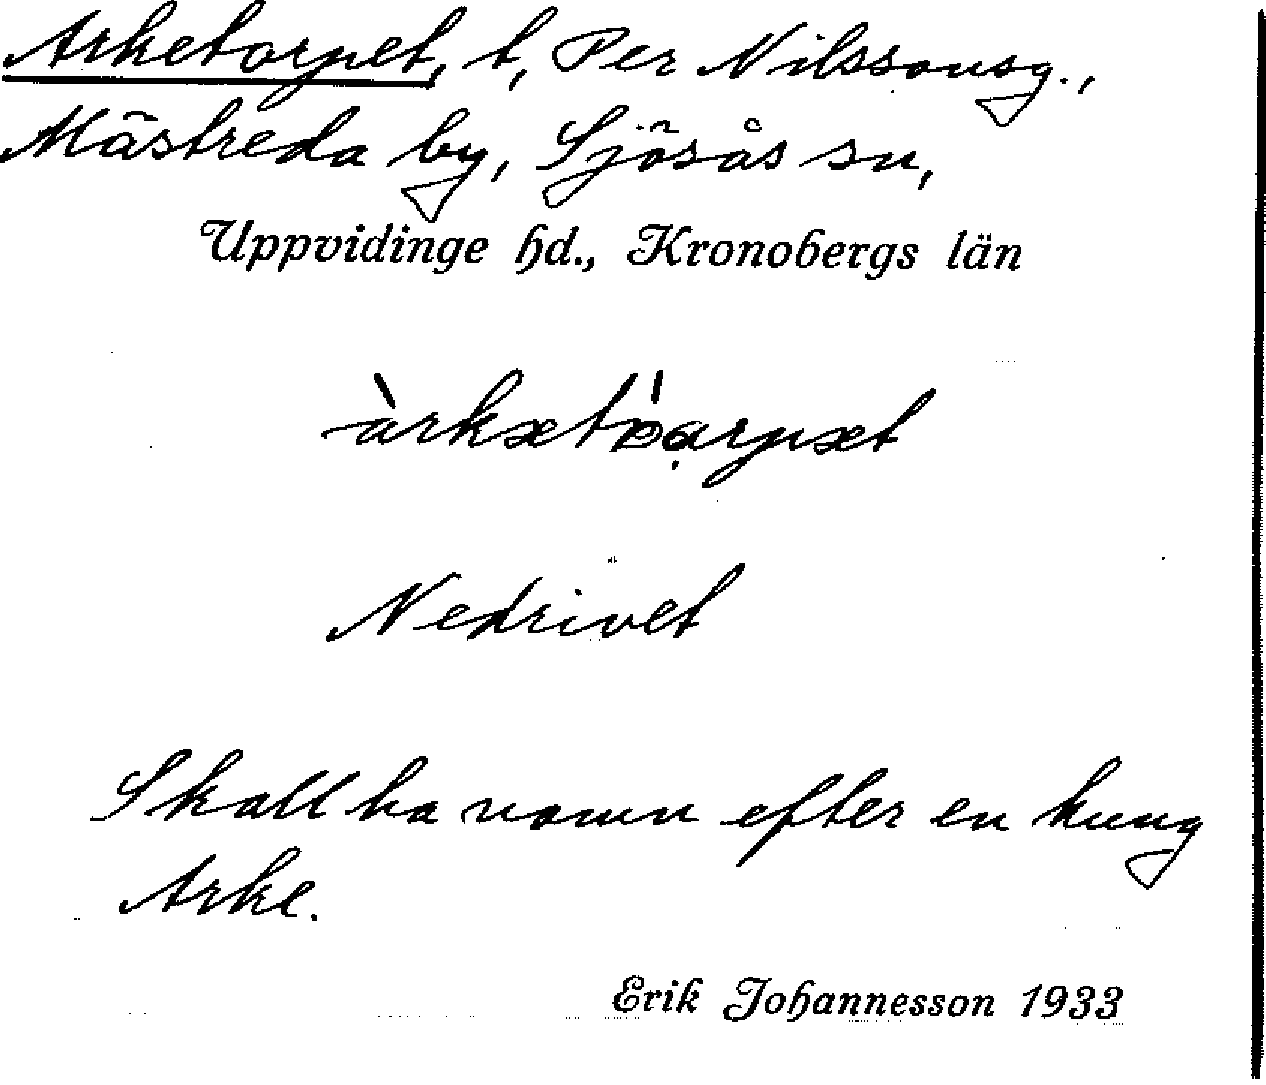 Arketorpet, t, Per Nilssonsg.,
Mästreda by, Sjösås sn,
Uppvidinge hd., Kronobergs län
Nedrivet
Skall ha namn efter en kung
Arke.
Erik Johannesson 1933